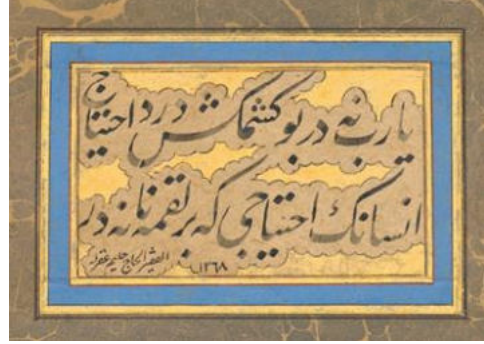 يارب نه در بو كشمكش درد احتياج
انسانك احتياجى كه بر لقمه نانه در
الفقير الحاج حليم غفرله ١٢٦٨